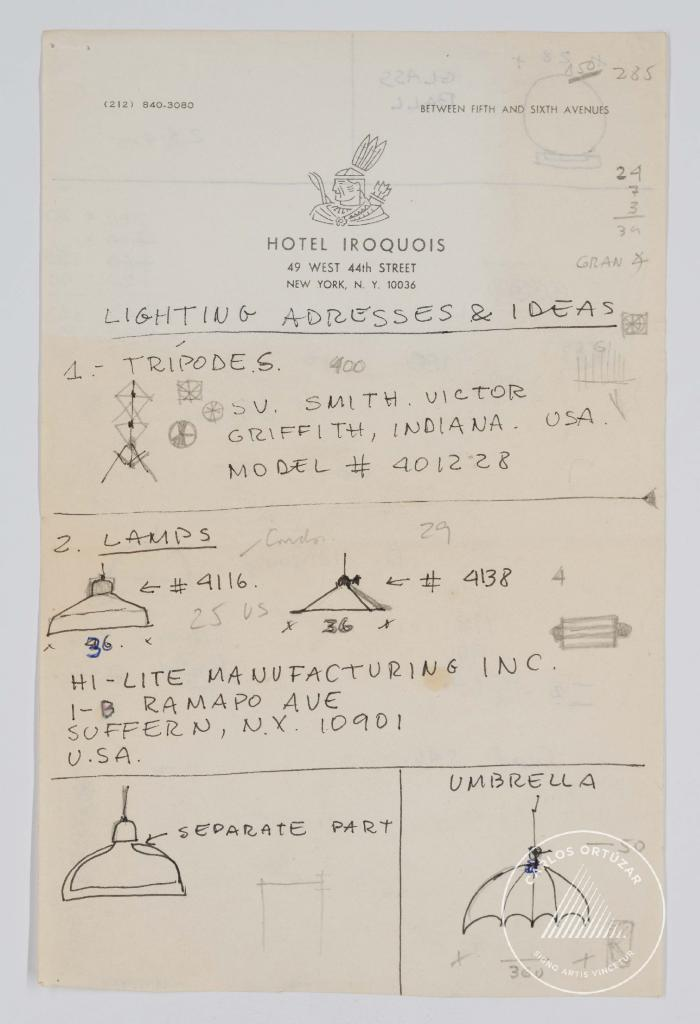 850 285
(212) 840-3080
BETWEEN FIFTH AND SIXTH AVENUES
24
7
3
GRAN
HOTEL IROQUOIS
49 WEST 44th STREET
NEW YORK, N. Y. 10036
LIGHTING ADRESSES & IDEAS
1.- TRIPODES. 400
SV. SMITH. VICTOR
GRIFFITH, INDIANA. USA.
MODEL # 401228
2. LAMPS
29
← # 4116.
← # 4138
4
25 US
x 36. x
x 36 x
HI-LITE MANUFACTURING INC.
1-B RAMAPO AVE
SUFFERN, N.Y. 10901
U.S.A.
UMBRELLA
SEPARATE PART
50
CARLOS ORTÚZAR
SIGNO ARTIS VINCITUR
x 360 x